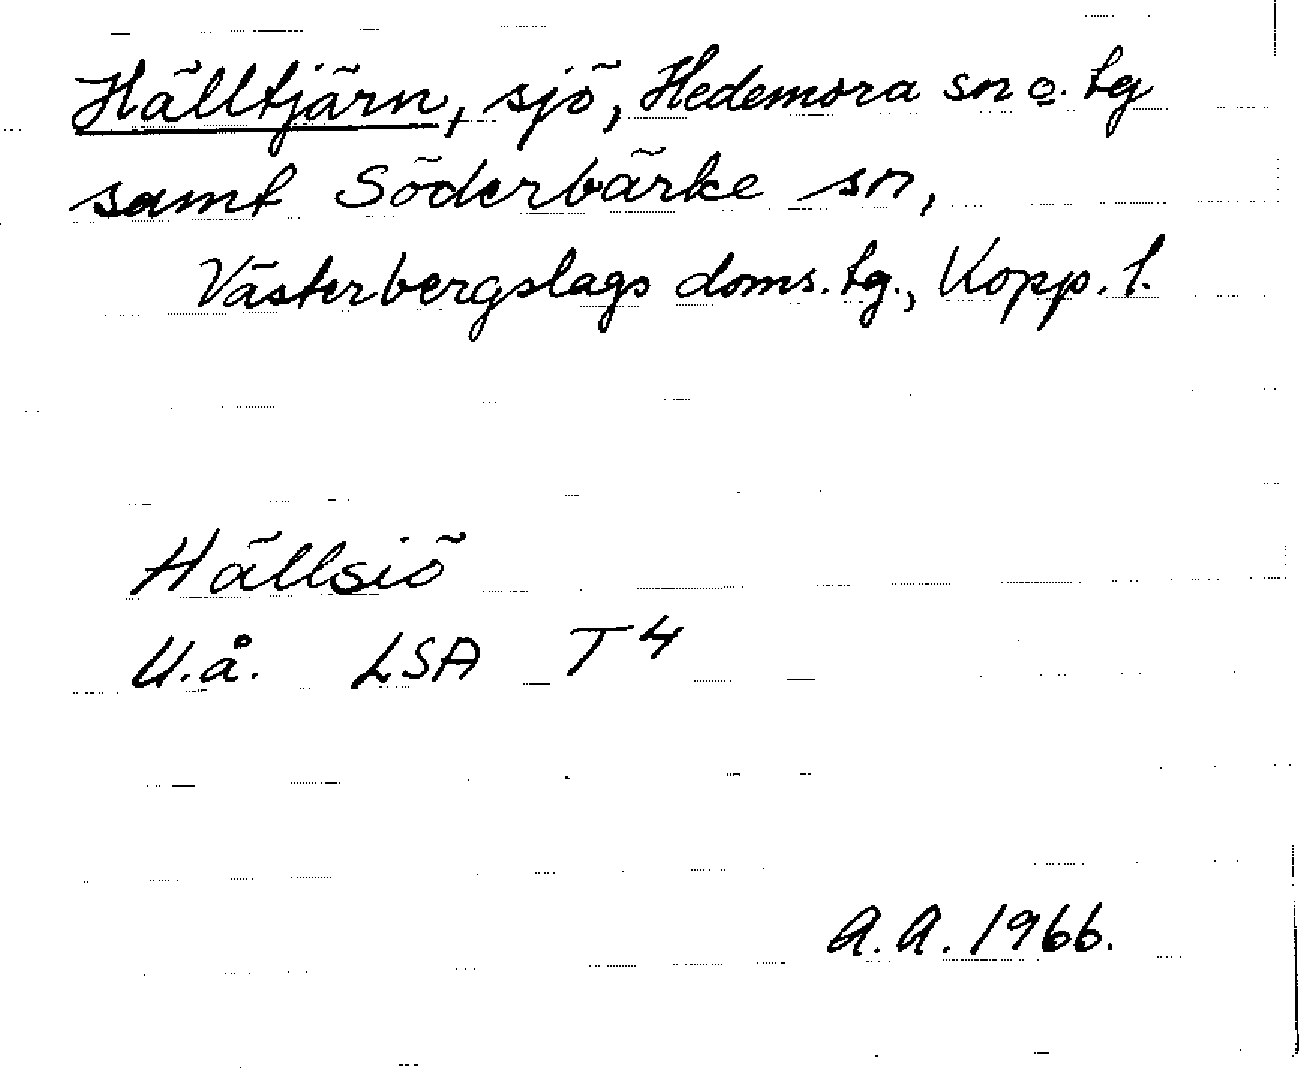 Hälltjärn, sjö, Hedemora sn o. tg
samt Söderbärke sn,
Västerbergslags doms. tg., Kopp. l.
Hällsiö
U.å. LSA T 4
A.A. 1966.